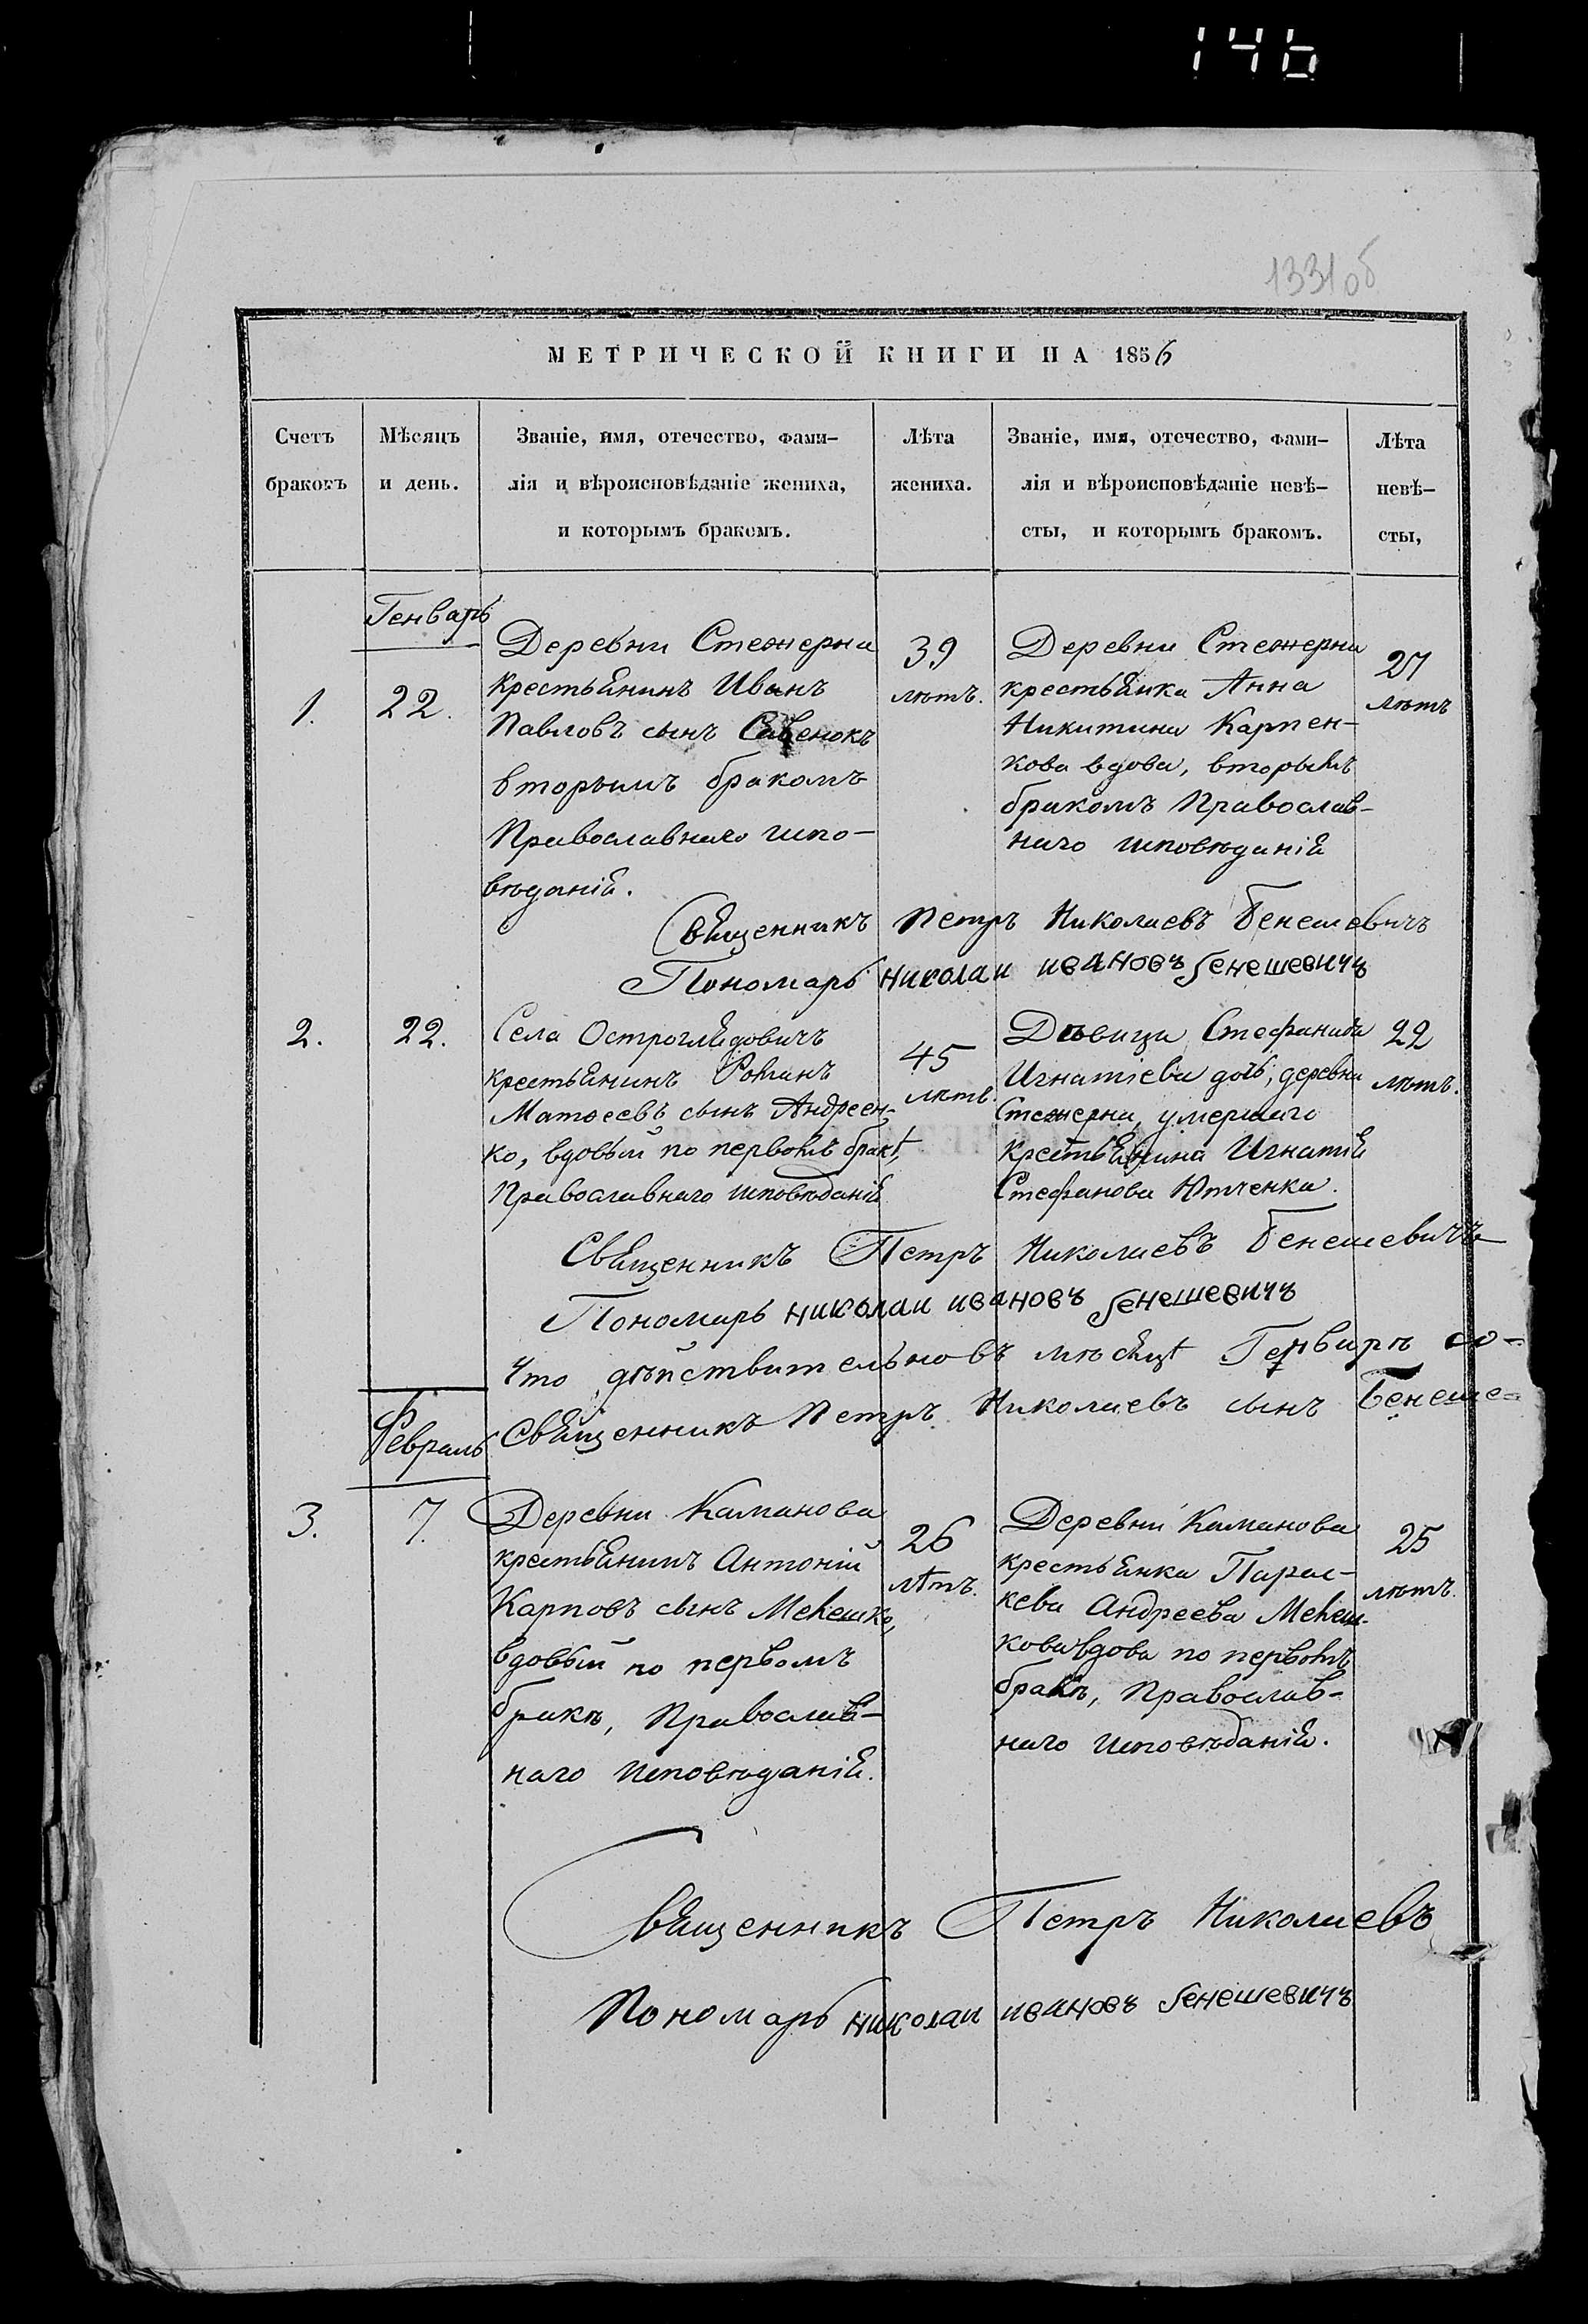 146
1331об
МЕТРИЧЕСКОЙ КНИГИ НА 1856
Счетъ
браковъ
Мѣсяцъ
и день.
Званіе, имя, отечество, фами-
лія и вѣроисповѣданіе жениха,
и которымъ бракомъ.
Лѣта
жениха.
Званіе, имя, отечество, фами-
лія и вѣроисповѣданіе невѣ-
сты, и которымъ бракомъ.
Лѣта
невѣ-
сты,
Генварь
1.
22.
Деревни Стежерни
крестьянинъ Иванъ
Павловъ сынъ Савенокъ
вторымъ бракомъ
Православнаго испо-
вѣданія.
39
лѣтъ.
Деревни Стежерни
крестьянка Анна
Никитина Карпен-
кова вдова, вторымъ
бракомъ Православ-
наго исповѣданія
27
лѣтъ
Священникъ Петръ Николаевъ Бенешевичъ
Пономарь Николаи Ивановъ Бенешевичъ
2.
22.
Села Остроглядовичъ
крестьянинъ Романъ
Матѳеевъ сынъ Андреен-
ко, вдовый по первомъ бракѣ,
Православнаго исповѣданія
45
лѣтъ.
Дѣвица Стефанида
Игнатіева дочь, деревни
Стежерни, умершаго
крестьянина Игнатія
Стефанова Ютченка.
22
лѣтъ.
Священникъ Петръ Николаевъ Бенешевичъ
Пономарь Николаи Ивановъ Бенешевичъ
что дѣйствительно въ мѣсяцѣ Генварѣ со-
Священникъ Петръ Николаевъ сынъ Бенеше-
Февраль
3.
7.
Деревни Каманова
крестьянинъ Антоній
Карповъ сынъ Мекешко,
вдовый по первомъ
бракѣ, Православ-
наго исповѣданія.
26
лѣтъ.
Деревни Каманова
крестьянка Парас-
кева Андреева Мекеш-
кова вдова по первомъ
бракѣ, Православ-
наго исповѣданія.
25
лѣтъ.
Священникъ Петръ Николаевъ
Пономарь Николаи Ивановъ Бенешевичъ